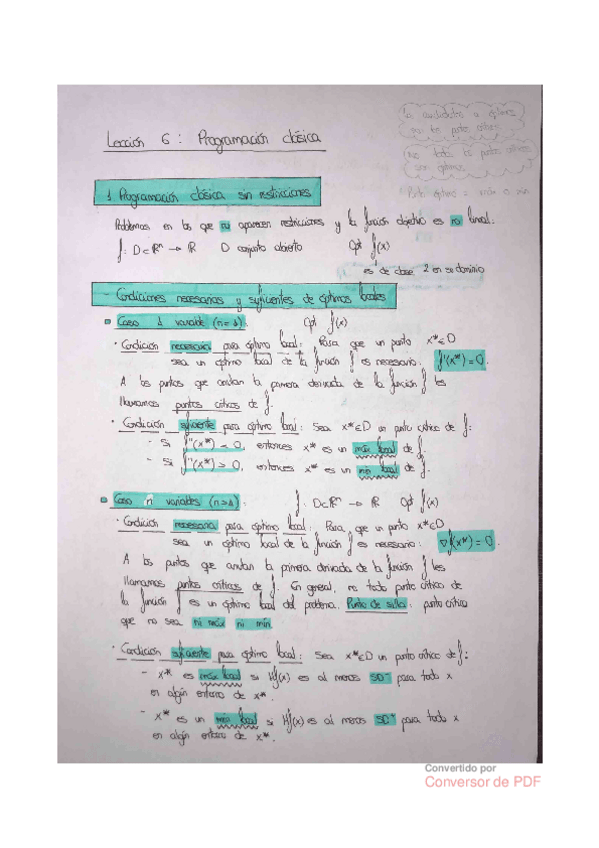 Los candidatos a óptimos
son los ptos críticos
no todos los puntos críticos
son óptimos.
Lección 6: Programación clásica
Punto óptimo = máx o mín
1. Programación clásica sin restricciones
Problemas en los que no aparecen restricciones y la función objetivo es no lineal.
f: D⊂ℝⁿ → ℝ D conjunto abierto Opt f(x)
es de clase 2 en su dominio
- Condiciones necesarias y suficientes de óptimos locales
Caso 1 variable (n=1). Opt f(x)
· Condición necesaria para óptimo local: Para que un punto x*∈D
sea un óptimo local de la función f es necesario: f'(x*) = 0.
A los puntos que anulan la primera derivada de la función f les
llamamos puntos críticos de f.
· Condición suficiente para óptimo local: Sea x*∈D un punto crítico de f:
- Si f''(x*) < 0, entonces x* es un máx local de f.
- Si f''(x*) > 0, entonces x* es un mín local de f.
Caso n variables (n>1). f: D⊂ℝⁿ → ℝ Opt f(x)
· Condición necesaria para óptimo local: Para que un punto x*∈D
sea un óptimo local de la función f es necesario: ∇f(x*) = 0.
A los puntos que anulan la primera derivada de la función f les
llamamos puntos críticos de f. En general, no todo punto crítico de
la función f es un óptimo local del problema. Punto de silla: punto crítico
que no sea ni máx ni mín.
· Condición suficiente para óptimo local: Sea x*∈D un punto crítico de f:
- x* es máx local si Hf(x) es al menos SD⁻ para todo x
en algún entorno de x*.
- x* es un mín local si Hf(x) es al menos SD⁺ para todo x
en algún entorno de x*.
Convertido por
Conversor de PDF